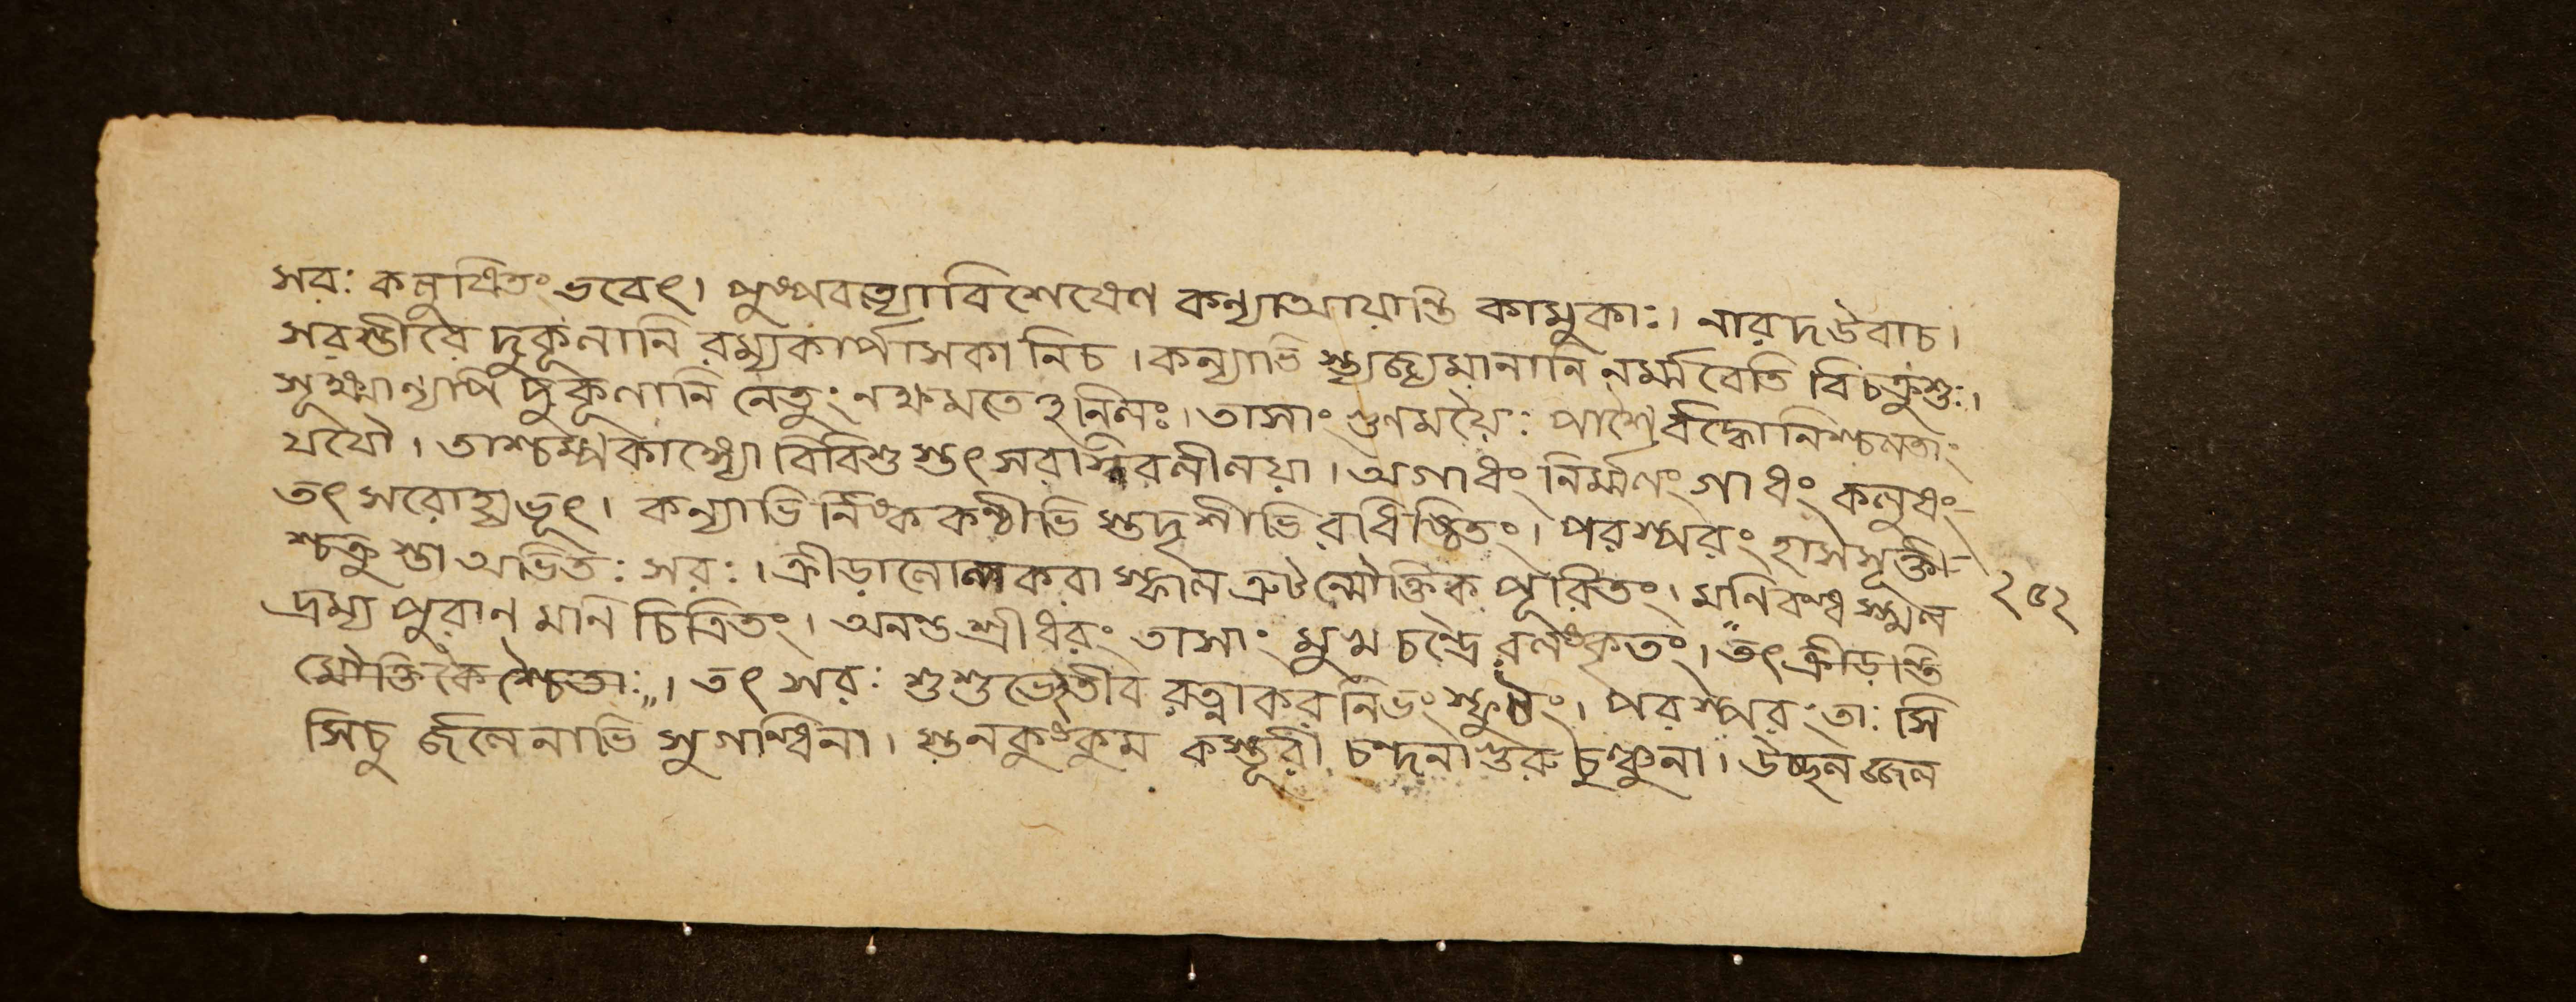 সরঃ কলুষিতং ভবেৎ। পুষ্পবত্যাবিশেষেণ কন্যাআয়ান্তি কামুকাঃ। নারদউবাচ।
সরস্তীরে দুকূলানি রম্যকার্পাসকানিচ। কন্যাভি স্ত্যজ্যমানানি নর্ম্মবেতি বিচক্রুশুঃ।
সূক্ষ্মান্যপি দুকূলানি নেতুং নক্ষমতেঽনিলঃ। তাসাং গুণময়ৈঃ পাশৈর্বদ্ধোনিশ্চলতাং
যযৌ। তাশ্চম্পকাঙ্গ্যো বিবিশু স্তৎ সরসী লীলয়া। অগাধং নির্ম্মলং গাধং কলুষং-
তৎ সরোহ্যভূৎ। কন্যাভি র্নিষ্ককণ্ঠীভি স্তদৃশীভি রধিষ্ঠিতং। পরস্পরং হাসসূক্তী-
শ্চক্রু স্তা অভিতঃ সরঃ। ক্রীড়ালোলকরা স্ফাল ত্রুটন্মৌক্তিক পূরিতং। মনিবন্ধ স্খল
দ্রম্য পুরান মনি চিত্রিতং। অনন্তশ্রীধরং তাসাং মুখ চন্দ্রৈ রলঙ্কৃতং। তৎ ক্রীড়ন্তি
মৌক্তিকৈ শ্চৈতাঃ। তৎ সরঃ শুশুভেতীব রত্নাকর নিভং স্ফুটং। পরস্পরং তাঃ সি
সিচু র্জলেনাভি সুগন্ধিনা। স্তনকুঙ্কুম কস্তূরী চন্দনাগুরু চুঞ্চুনা। উচ্ছলজ্জল
২৫২